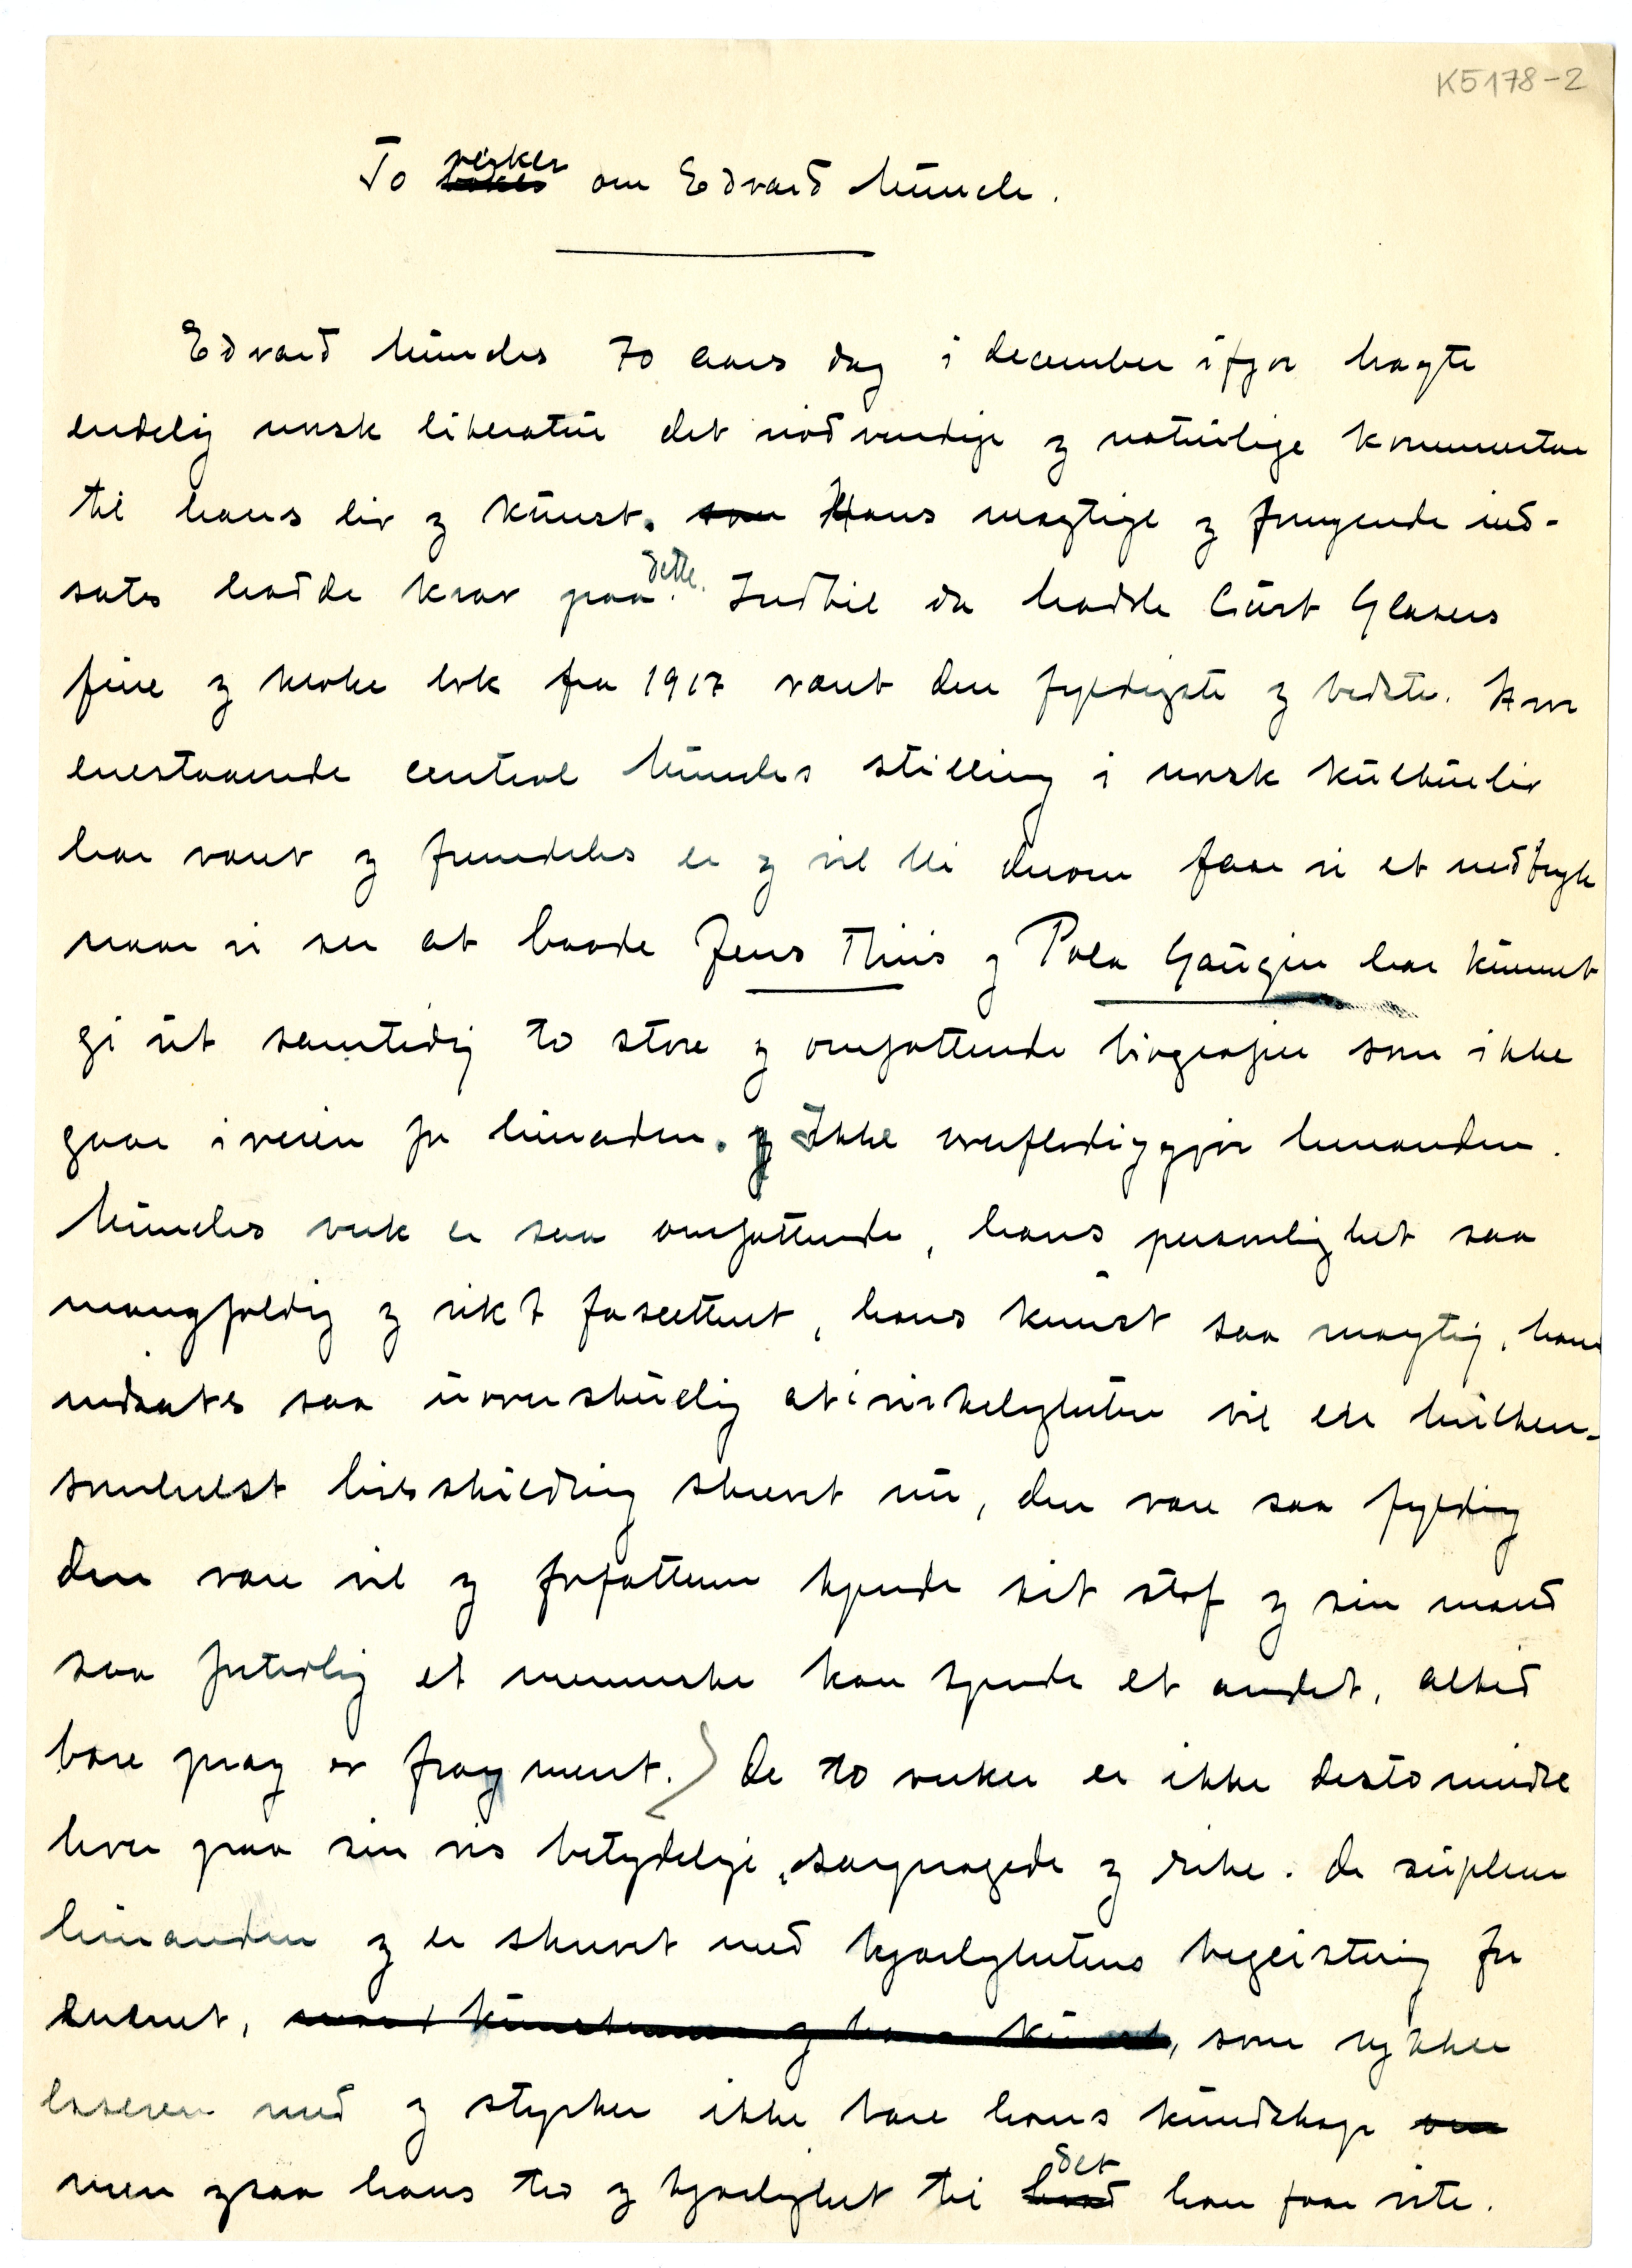 K5178-2
To bøker verker om Edvard Munch.
Edvard Munchs 70 aars dag i december ifjor bragte
endelig norsk literatur det nødvendige og naturlige kommentar
til hans liv og kunst. som Hans mægtige og fængende ind-
sats hadde krav paa dette. Indtil da hadde Curt Glasers
fine og kloke bok fra 1917 været den fyldigste og bedste. Hvor
enestaaende central Munchs stilling i norsk kulturliv
har været og fremdeles er og vil bli derom faar vi et indtryk
naar vi ser at baade Jens Thiis og Pola Gauguin har kunnet
gi ut samtidig to store og omfattende biografier som ikke
gaar iveien for hinanden. og Ikke overflødiggjør hinanden.
Munchs verk er saa omfattende, hans personlighet saa
mangfoldig og rikt facettert, hans kunst saa mægtig, hans
indsats saa uoverskuelig at i virkeligheten vil enhver hvilken-
somhelst livsskildring skrevet nu, den være saa fyldig
den være vil og forfatteren kjende sit stof og sin mand
saa inderlig et menneske kan kjende et andet, altid
bære præg av fragment. De to verker er ikke desto mindre
hver paa sin vis betydelige, særprægede og rike. De suplerer
hinanden og er skrevet med kjærlighetens begeistring for
emnet, som rykker
læseren med og styrker ikke bare hans kundskap om
men ogsaa hans tro og kjærlighet til hvad det han faar vite.